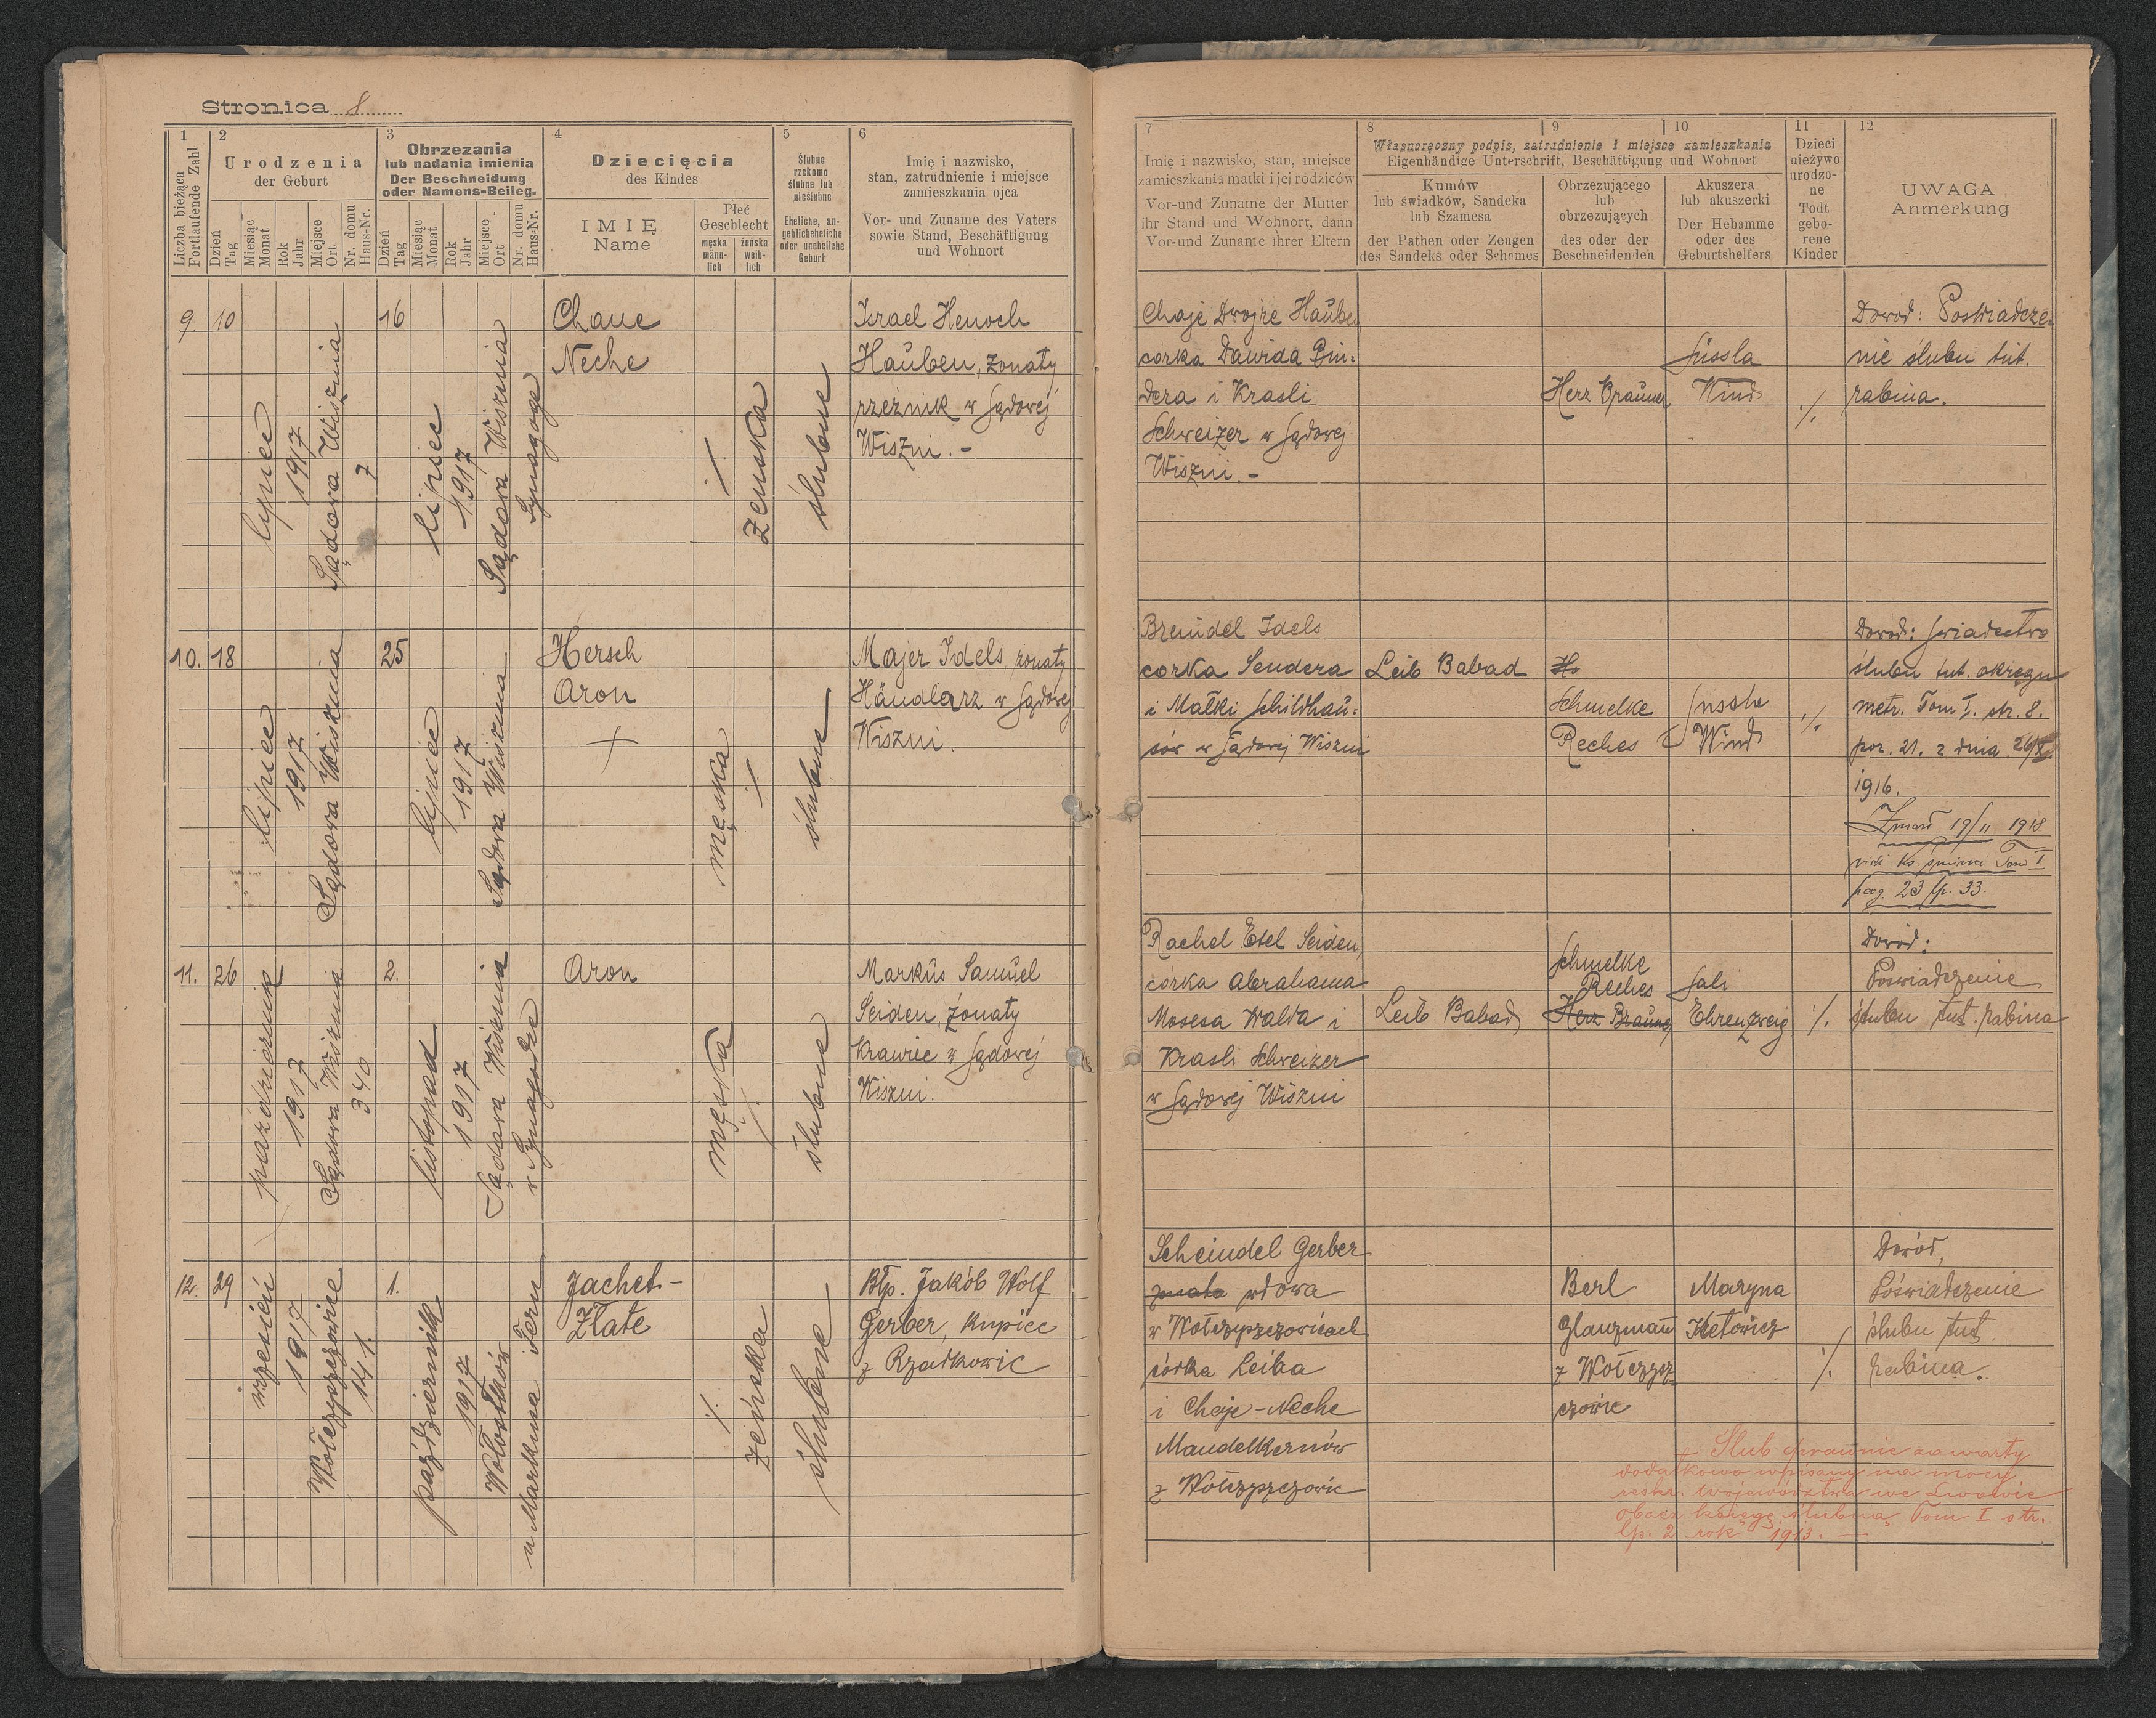 Stronica 8
1
Liczba bieżąca
Fortlaufende Zahl
2
Urodzenia
der Geburt
Dzień
Tag
Miesiąc
Monat
Rok
Jahr
Miejsce
Ort
Nr. domu
Haus-Nr.
3
Obrzezania
lub nadania imienia
Der Beschneidung
oder Namens-Beileg.
Dzień
Tag
Miesiąc
Monat
Rok
Jahr
Miejsce
Ort
Nr. domu
Haus-Nr.
4
Dziecięcia
des Kindes
IMIĘ
Name
Płeć
Geschlecht
męska
männ-
lich
żeńska
weib-
lich
5
Ślubne
rzekomo
ślubne lub
nieślubne
Eheliche, an-
geblicheheliche
oder uneheliche
Geburt
6
Imię i nazwisko,
stan, zatrudnienie i miejsce
zamieszkania ojca
Vor- und Zuname des Vaters
sowie Stand, Beschäftigung
und Wohnort
7
Imię i nazwisko, stan, miejsce
zamieszkania matki i jej rodziców
Vor-und Zuname der Mutter
ihr Stand und Wohnort, dann
Vor-und Zuname ihrer Eltern
Własnoręczny podpis, zatrudnienie i miejsce zamieszkania
Eigenhändige Unterschrift, Beschäftigung und Wohnort
8
Kumów
lub świadków, Sandeka
lub Szamesa
der Pathen oder Zeugen
des Sandeks oder Schames
9
Obrzezującego
lub
obrzezujących
des oder der
Beschneidenden
10
Akuszera
lub akuszerki
Der Hebamme
oder des
Geburtshelfers
11
Dzieci
nieżywo
urodzo-
ne
Todt
gebo-
rene
Kinder
12
UWAGA
Anmerkung
9.
10
lipiec
1917
Sądowa Wisznia
7
16
lipiec
1917
Sądowa Wisznia
Synagoge
Chane
Neche
żeńska
ślubne
Israel Henoch
Hauben, żonaty
rzeźnik w Sądowej
Wiszni. -
Chaje Dwojre Hauben
córka Dawida Bin-
dera i Krasli
Schweizer w Sądowej
Wiszni. -
Herz Brauner
Süssla
Wind
./.
Dowód: Poświadcze-
nie ślubu tut.
rabina.
10.
18
lipiec
1917
Sądowa Wisznia
25
lipiec
1917
Sądowa Wisznia
Hersch
Aron
męska
ślubne
Majer Idels, żonaty
Händlarz w Sądowej
Wiszni.
Breindel Idels
córka Sendera
i Małki Schildhau-
sów w Sądowej Wiszni
Leib Babad
Schmelke
Reches
Wind
./.
Dowód: Świadectwo
ślubu tut. okręgu
metr. Tom I. str. 8.
poz. 21. z dnia
1916.
Zmarł 19/11 1918
Tom I
pag. 23 lp. 33.
11.
26
październik
1917
Sądowa Wisznia
340
2.
listopad
1917
Sądowa Wisznia
w Synagodze
Aron
męska
ślubne
Markus Samuel
Seiden, żonaty
Krawiec w Sądowej
Wiszni.
Rachel Etel Seiden,
córka Abrahama
Mosesa Walda i
Krasli Schweizer
w Sądowej Wiszni
Leib Babad
Schmelke
Reches
Herz Brauner
Sali
Ehrenzweig
./.
Dowód:
Poświadczenie
ślubu tut. rabina
12.
29
wrzesień
1917
Wołczyszczowice
141.
1.
październik
1917
Wołostków
u Markusa Fern
Jachet-
Złate
./.
żeńska
ślubne
Błp. Jakób Wolf
Gerber, Kupiec
z Rzadkowic
Scheindel Gerber
wdowa
w Wołczyszczowicach
córka Leiba
i Chaje-Neche
Mandelkernów
z Wołczyszczowic
Berl
Glanzmann
z Wołczysz-
czowic
Maryna
./.
Dowód,
Poświadczenie
ślubu tut.
rabina.
+ Ślub prawnie zawarty
dodatkowo wpisany na mocy
reskr. Województwa we Lwowie
obacz księgę ślubną Tom I str.
lp. 2 rok 1913. —